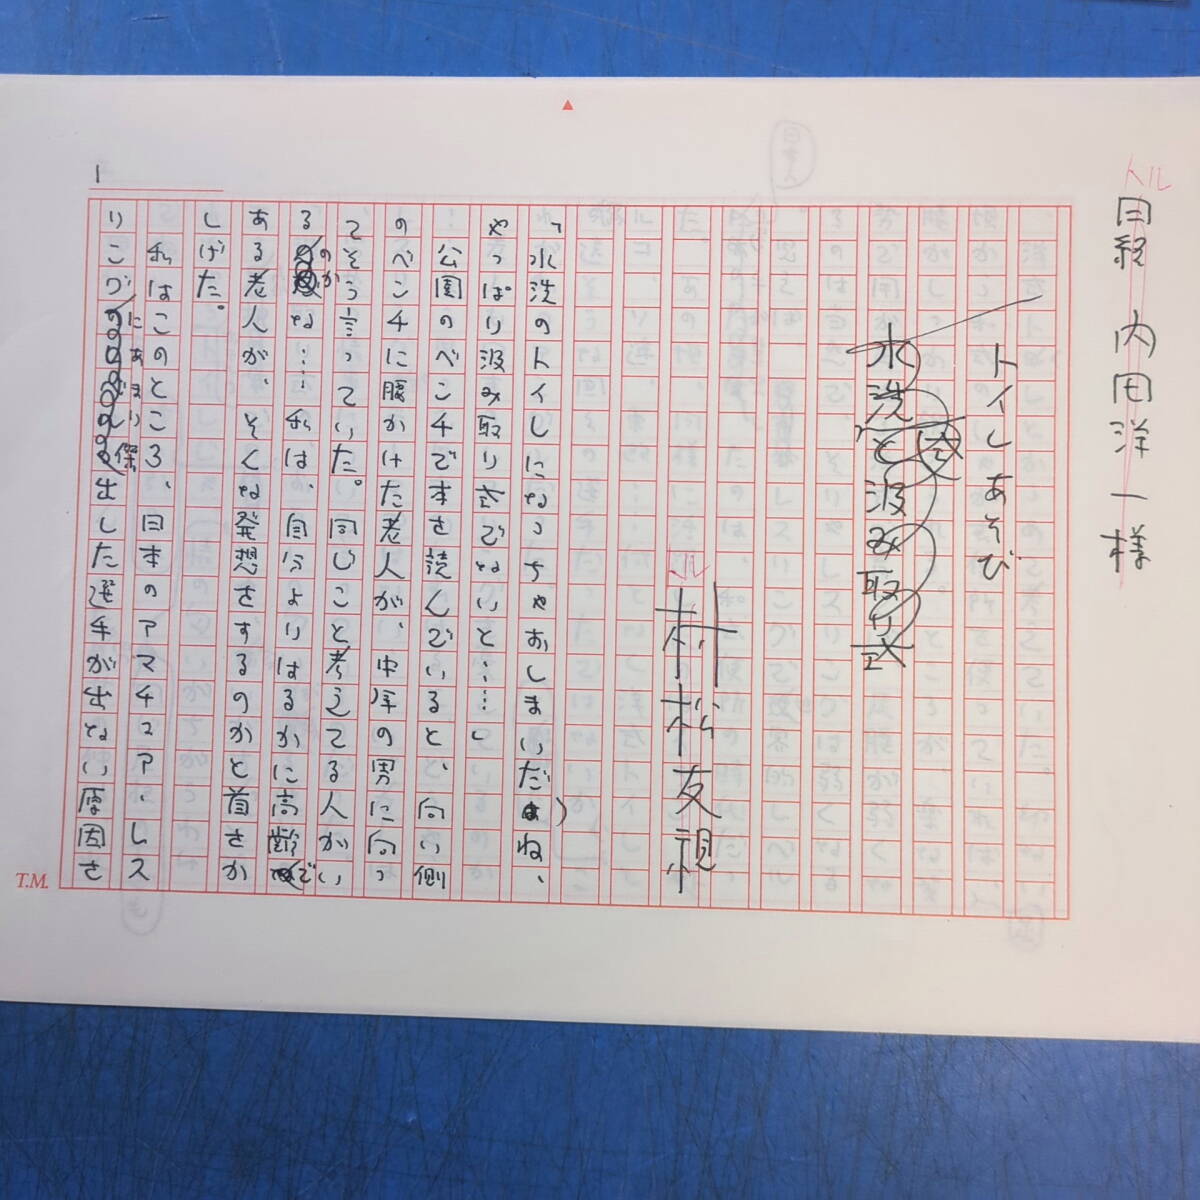 トル
日経 内田洋一様
トイレあそび
水洗と汲み取り式
トル
村松友視
「水洗のトイレになっちゃおしまいだね、
やっぱり汲み取り式でないと……」
公園のベンチで本を読んでいると、向い側
のベンチに腰かけた老人が、中年の男に向っ
てそう言っていた。同じこと考えてる人がい
るのかな……私は、自分よりはるかに高齢で
ある老人が、そんな発想をするのかと首をか
しげた。
私はこのところ、日本のアマチュア・レス
リングにあまり傑出した選手が出ない原因を
1
T.M.